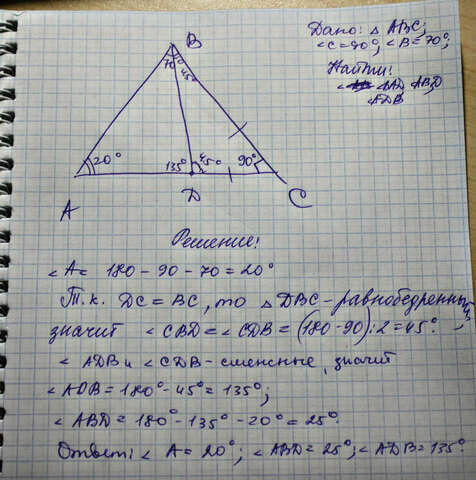 Дано: △ ABC;
∠C = 90°; ∠B = 70°;
Найти:
∠BAD, ∠ABD
∠ADB
B
70°
45°
20°
135°
45°
90°
A
D
C
Решение:
∠A = 180 - 90 - 70 = 20°
Т.к. DC = BC, то △ DBC - равнобедренный,
значит ∠CBD = ∠CDB = (180 - 90) : 2 = 45°;
∠ADB и ∠CDB - смежные, значит
∠ADB = 180° - 45° = 135°;
∠ABD = 180° - 135° - 20° = 25°.
Ответ: ∠A = 20°; ∠ABD = 25°; ∠ADB = 135°.